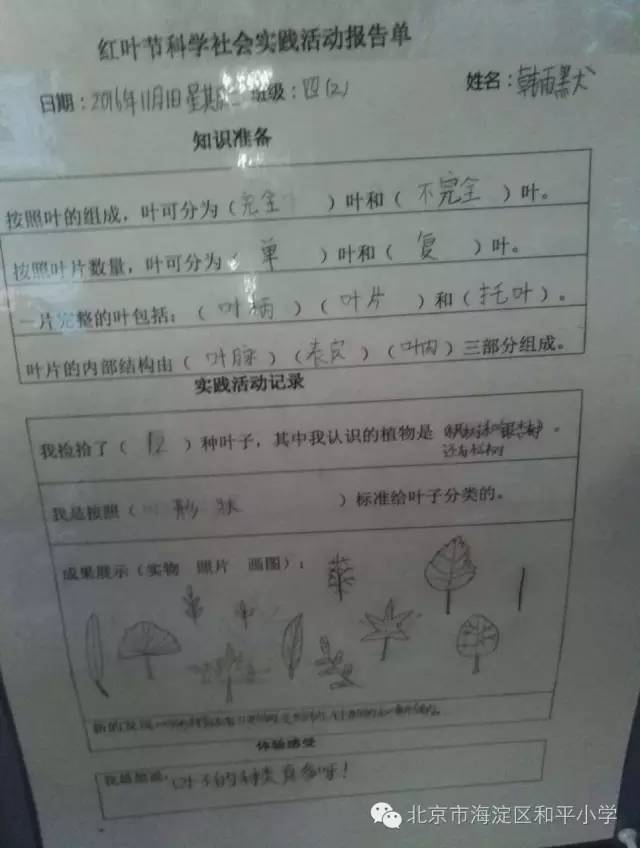 红叶节科学社会实践活动报告单
日期：2016年11月1日 星期二 班级：四(2) 姓名：韩雨默
知识准备
按照叶的组成，叶可分为（完全）叶和（不完全）叶。
按照叶片数量，叶可分为（单）叶和（复）叶。
一片完整的叶包括：（叶柄）（叶片）和（托叶）。
叶片的内部结构由（叶脉）（表皮）（叶肉）三部分组成。
实践活动记录
我捡拾了（12）种叶子，其中我认识的植物是 枫树和银杏树。
还有松树
我是按照（形状）标准给叶子分类的。
成果展示（实物 照片 画图）：
新的发现
体验感受
我想想说：叶子的种类真多呀！
北京市海淀区和平小学